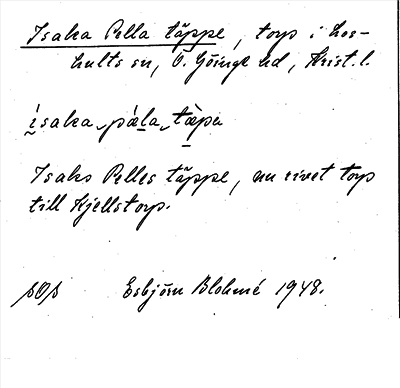 Isaka Pella täppe, torp i Los-
hults sn, Ö. Göinge hd, Krist. l.
ísaka pála tàpa
Isaks Pelles täppe, nu rivet torp
till Kjellstorp.
pOp Esbjörn Blohmé 1948.